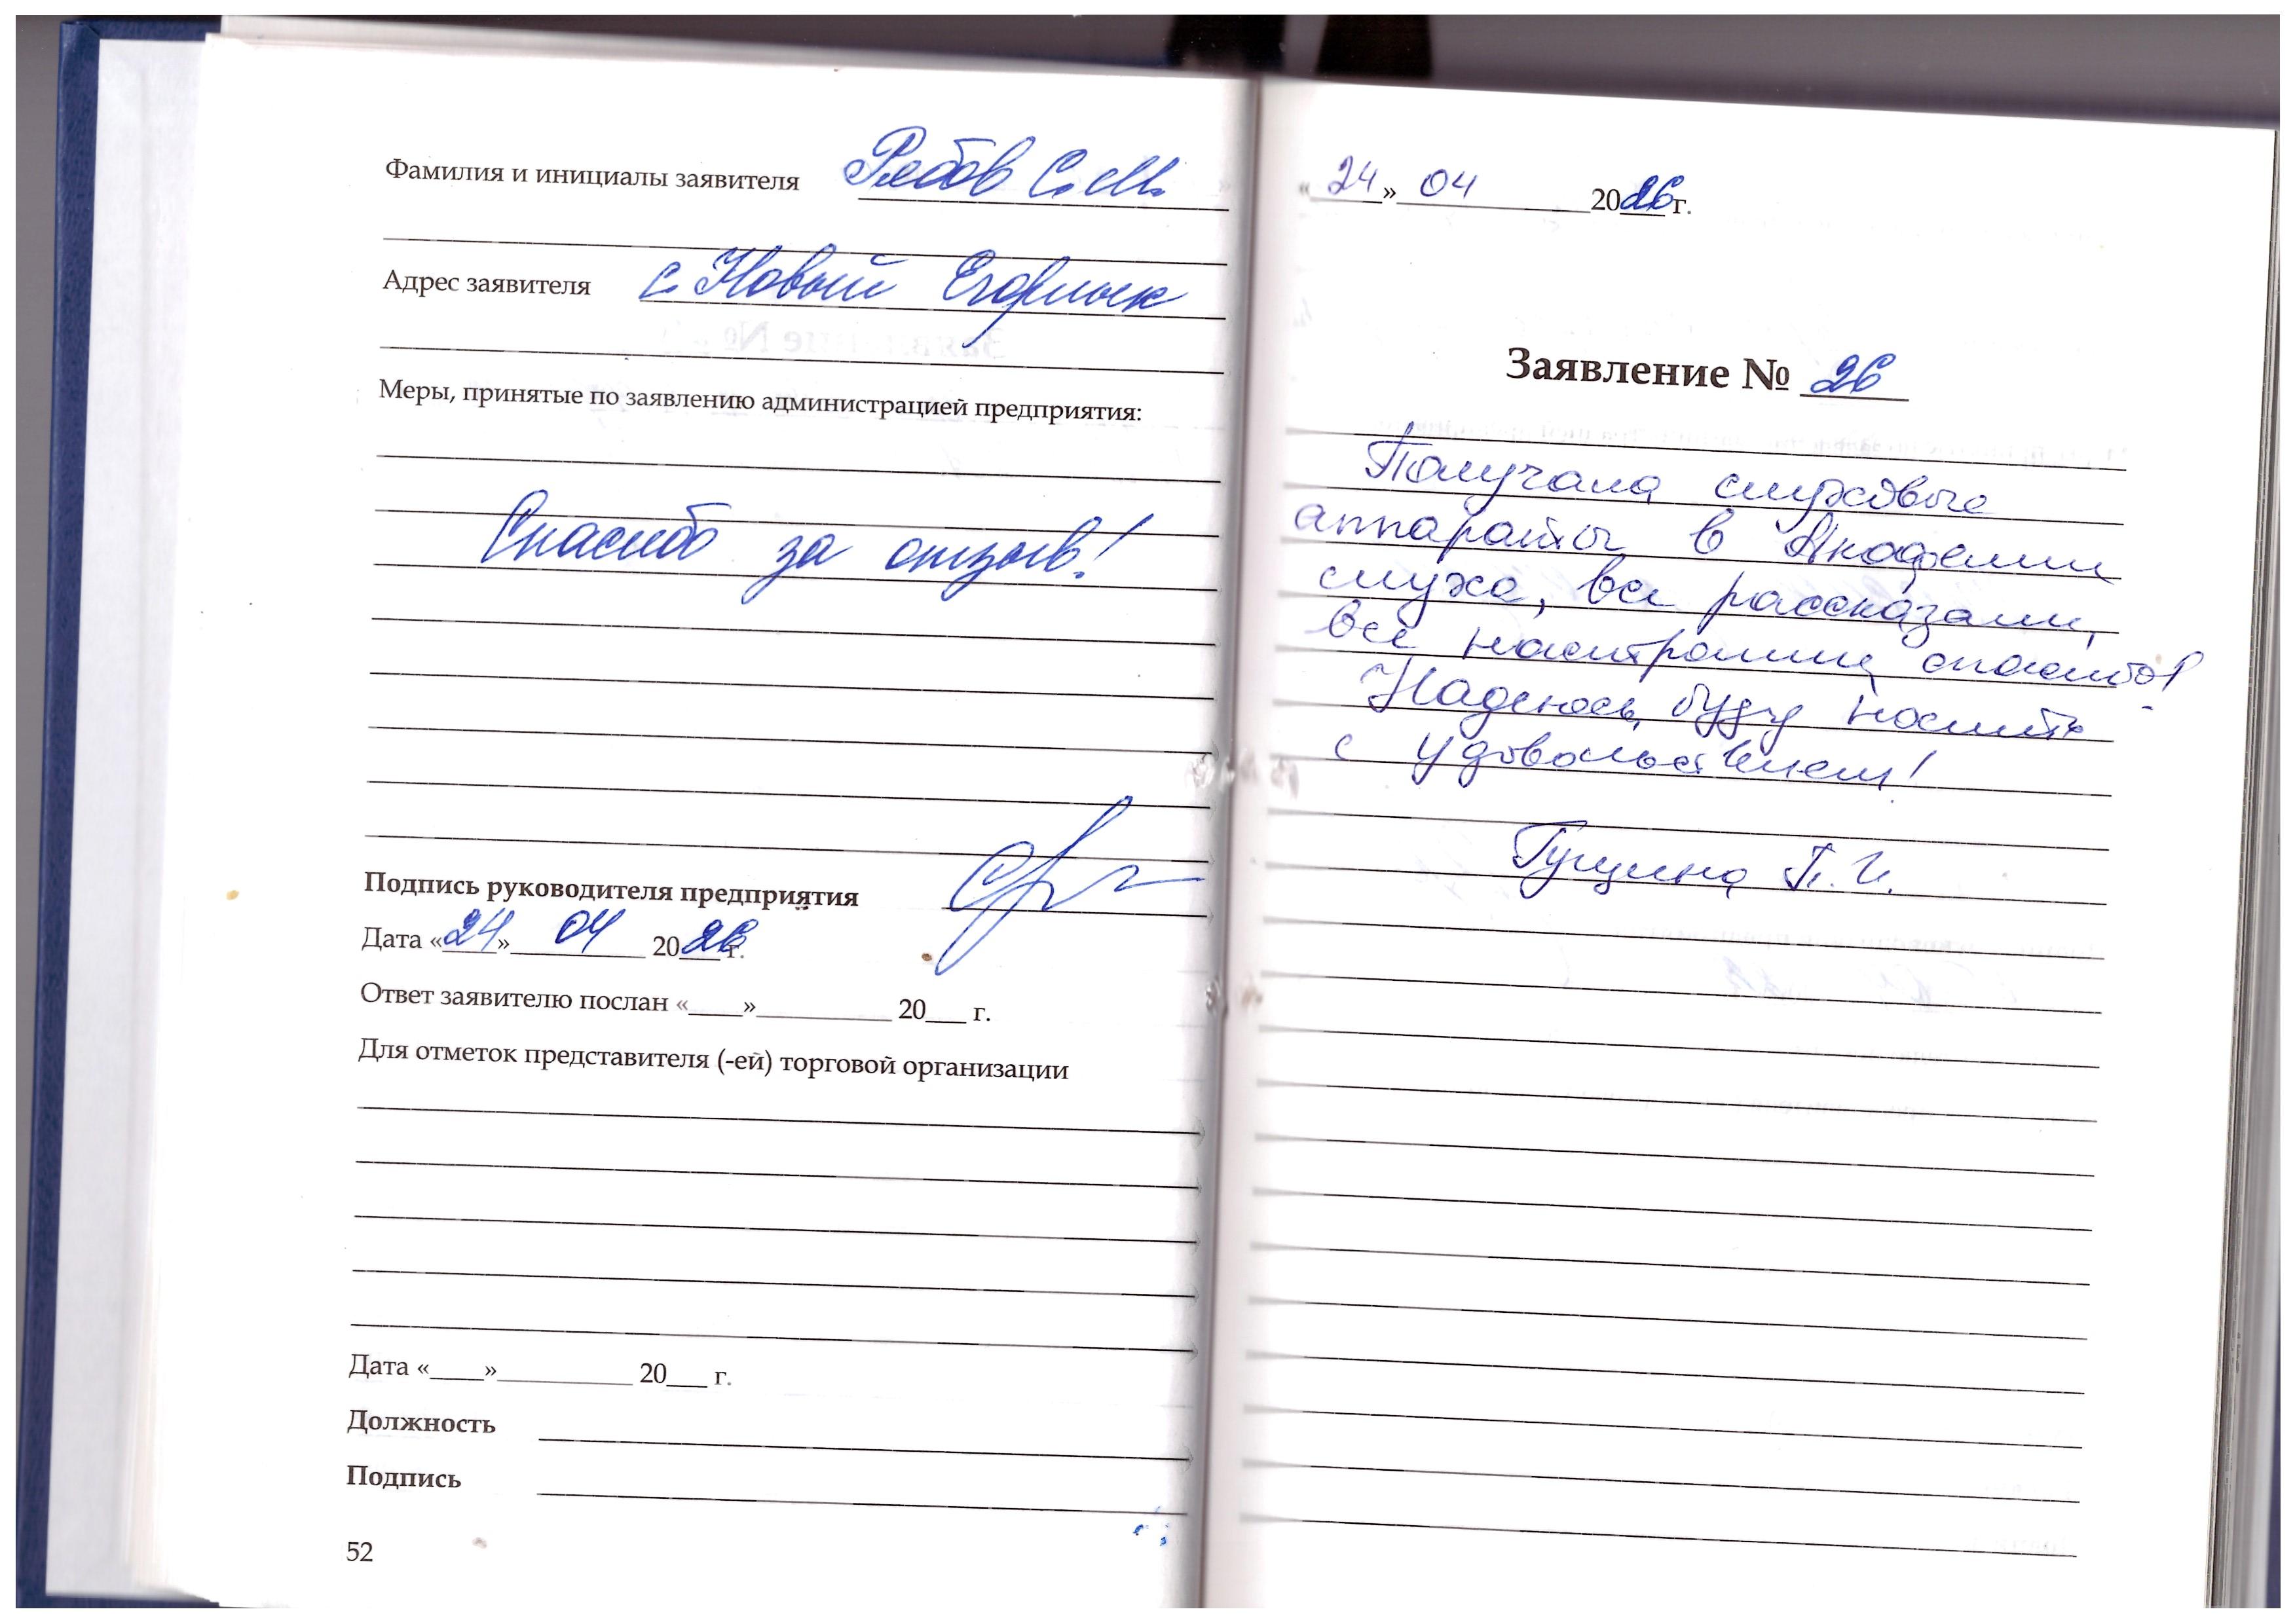 Фамилия и инициалы заявителя Рябов С.М.
Адрес заявителя с. Новый Егорлык
Меры, принятые по заявлению администрацией предприятия:
Спасибо за отзыв!
Подпись руководителя предприятия
Дата «24» 04 2026 г.
Ответ заявителю послан «____»__________ 20___ г.
Для отметок представителя (-ей) торговой организации
Дата «____»__________ 20___ г.
Должность
Подпись
52
«24» 04 2026 г.
Заявление № 26
Получала слуховые
аппараты в Академии
слуха, все рассказали,
все настроили, спасибо!
Надеюсь, буду носить
с удовольствием!
Гущина П. И.